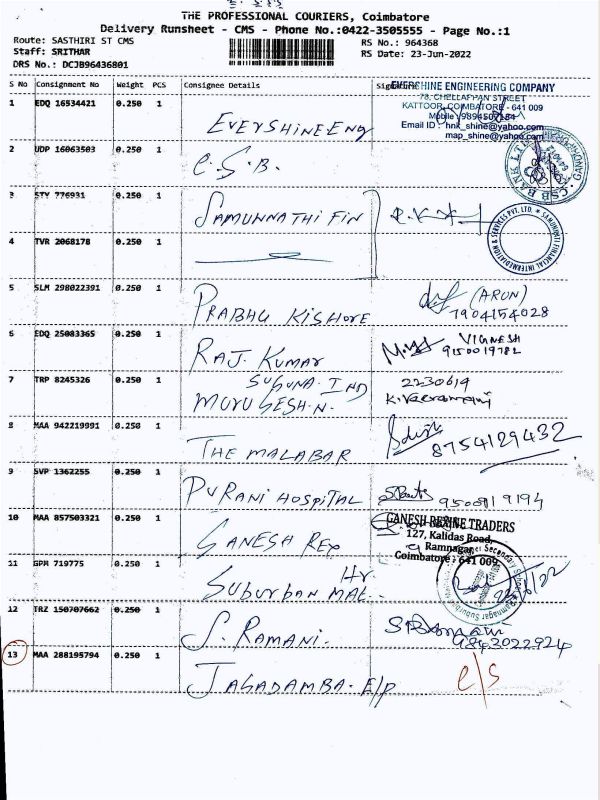 THE PROFESSIONAL COURIERS, Coimbatore
Delivery Runsheet - CMS - Phone No.:0422-3505555 - Page No.:1
Route: SASTHIRI ST CMS
RS No.: 964368
Staff: SRITHAR
RS Date: 23-Jun-2022
DRS No.: DCJB96436801
S No Consignment No Weight PCS Consignee Details Signature
EVERSHINE ENGINEERING COMPANY
78, CHELLAPPAN STREET
KATTOOR, COIMBATORE - 641 009
Mobile : 9894507184
Email ID : hnk_shine@yahoo.com
map_shine@yahoo.com
1 EDQ 16534421 0.250 1 EVERSHINE ENG
2 UDP 16063503 0.250 1 C.S.B.
CSB BANK LTD
3 STY 776931 0.250 1 SAMUNNATHI FIN
4 TVR 2068178 0.250 1
SAMUNNATI FINANCIAL INTERMEDIATION & SERVICES PVT. LTD.
5 SLM 298022391 0.250 1 PRABHU KISHORE (ARUN)
7904154028
6 EDQ 25083365 0.250 1 RAJ. KUMAR VIGNESH
9150019782
7 TRP 8245326 0.250 1 SUGUNA. IND 2230619
MURUGESH.N. K.Veeramani
8 MAA 942219991 0.250 1 THE MALABAR 8754129432
9 SVP 1362255 0.250 1 PURANI HOSPITAL
10 MAA 857503321 0.250 1 GANESH REX
GANESH REXINE TRADERS
127, Kalidas Road,
Ramnagar,
Coimbatore : 641 009.
11 GPM 719775 0.250 1 SUBURBAN MAT. Hr
12 TRZ 150707662 0.250 1 S. RAMANI.
9843022924
13 MAA 288195794 0.250 1 JAGADAMBA. E/P e/s